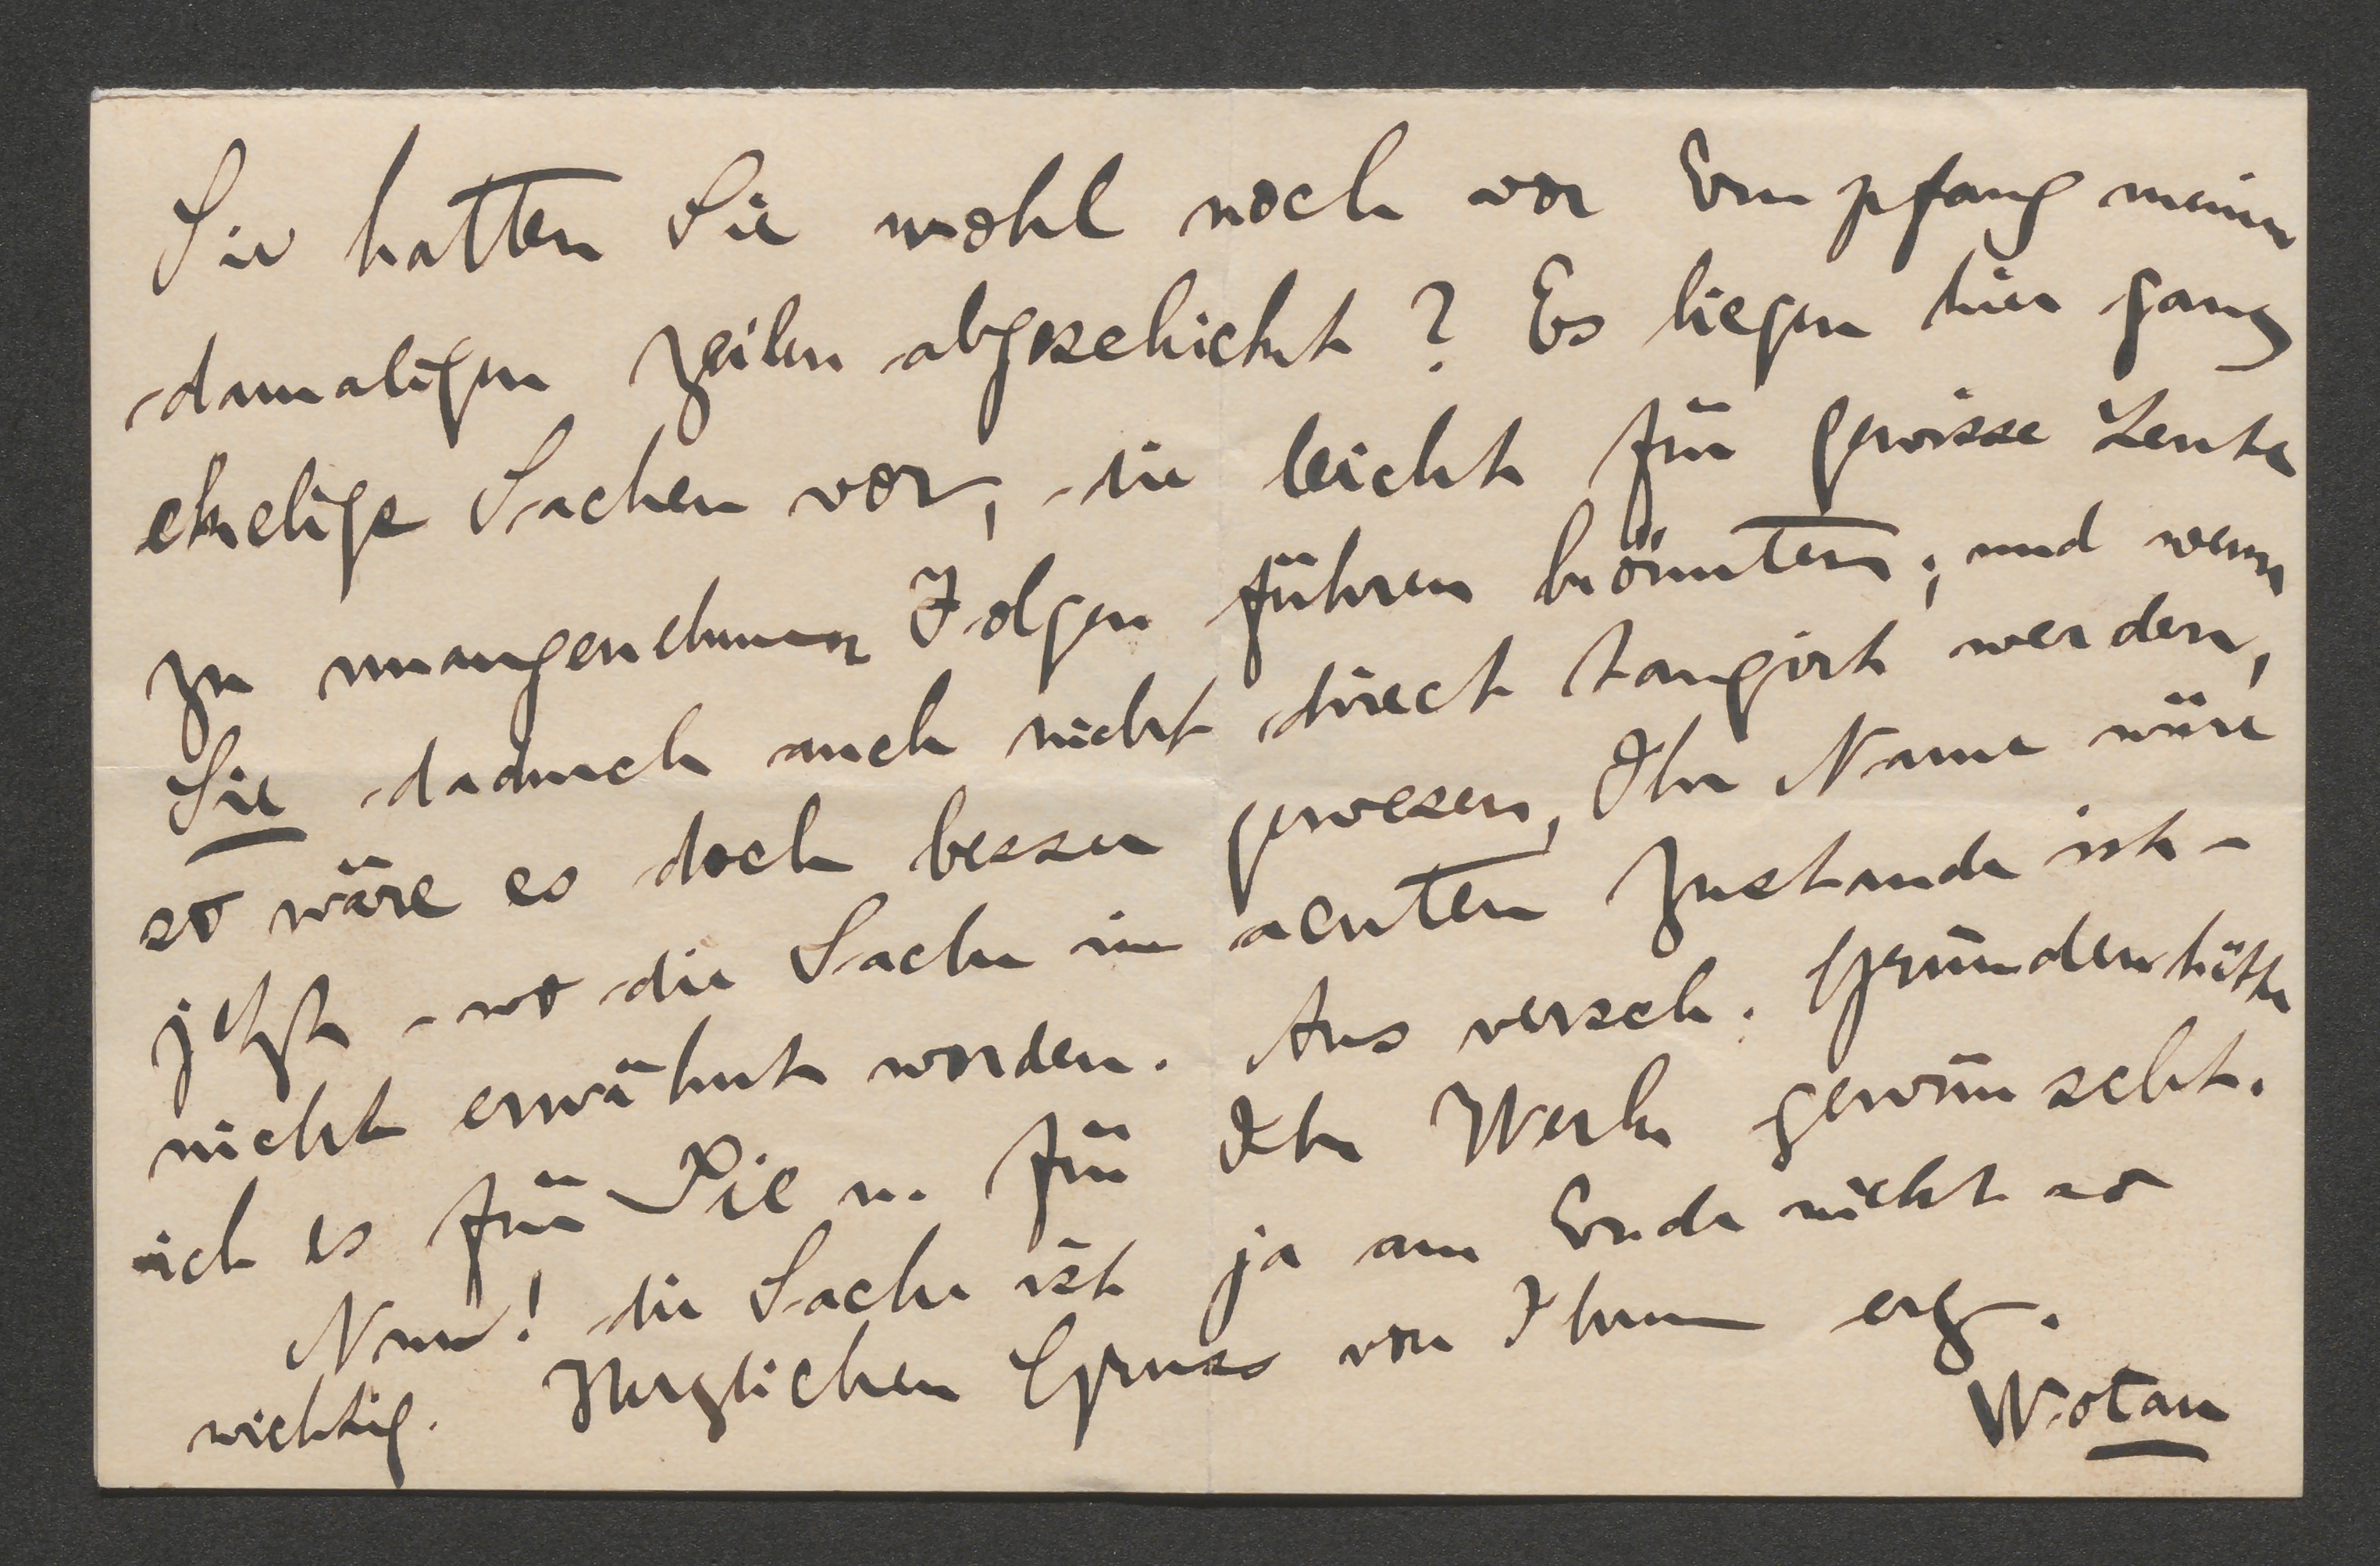 Sie hatten Sie wohl noch vor Empfang meiner
damaligen Zeilen abgeschickt? Es liegen hier ganz
ekelige Sachen vor, die leicht für gewisse Leute
zu unangenehmen Folgen führen könnten; und wenn
Sie dadurch auch nicht direct tangirt werden,
so wäre es doch besser gewesen, Ihr Name wäre
jetzt - wo die Sache im acuten Zustande ist -
nicht erwähnt worden. Aus versch. Gründen hätte
ich es für Sie u. für Ihr Werk gewünscht.
Nun! die Sache ist ja am Ende nicht so
wichtig. Herzlichen Gruss von Ihrem erg.
Wotan